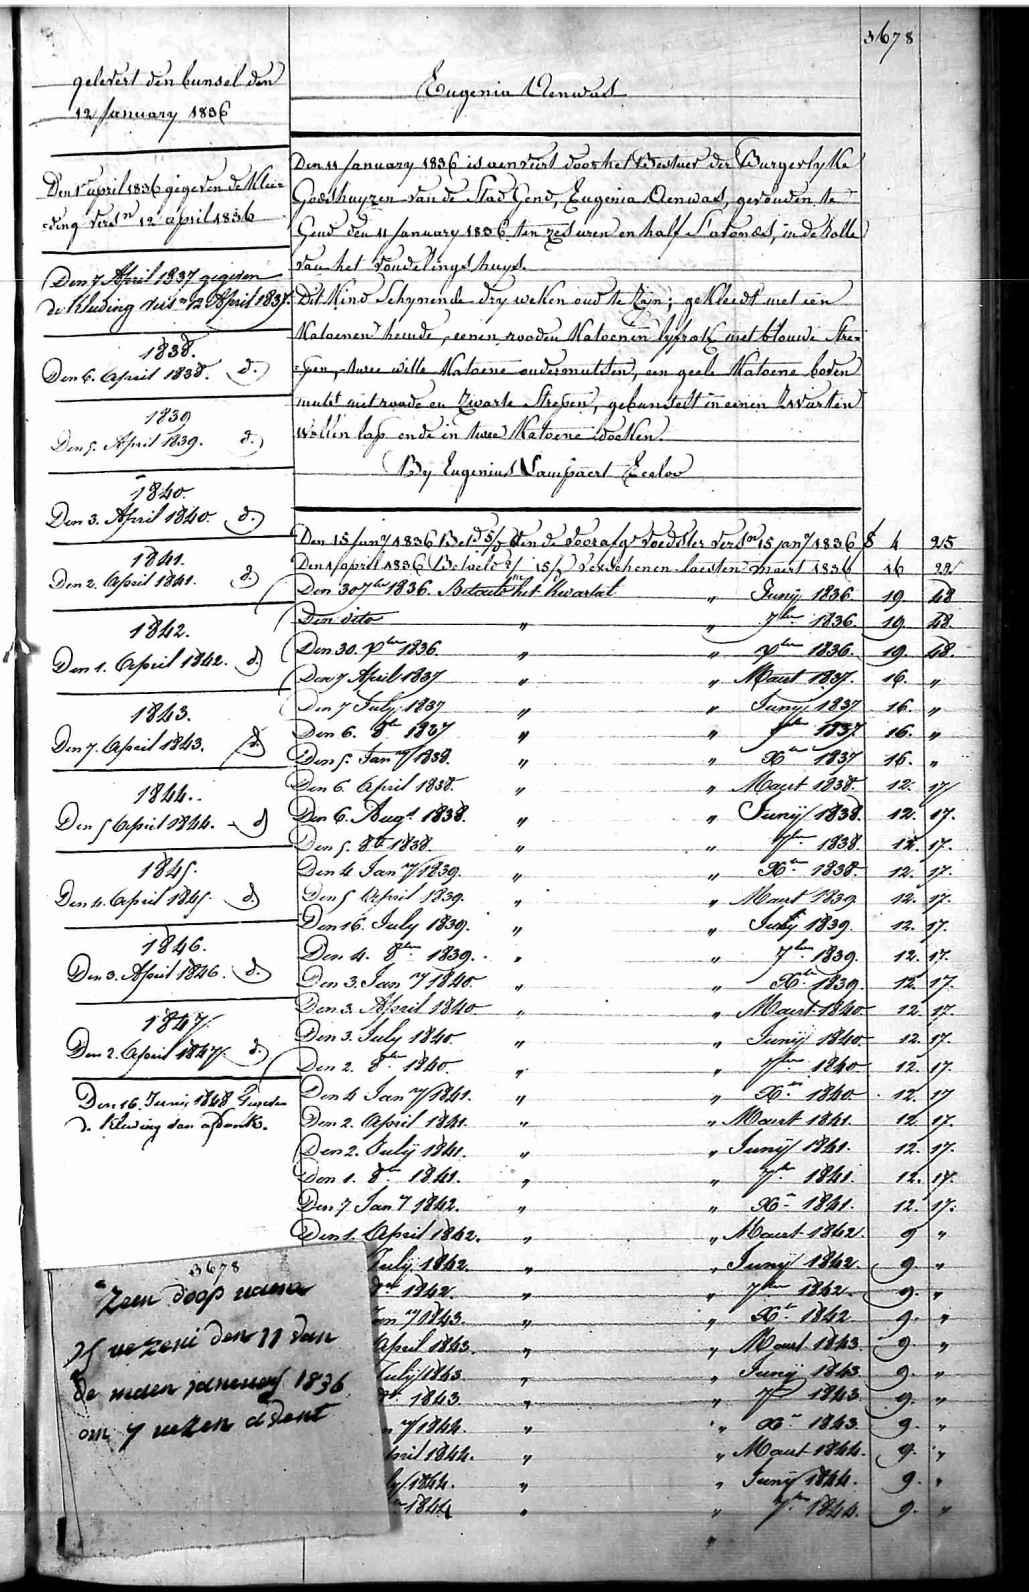 3678
gelevert den bunsel den
12 January 1836
Den 1r april 1836 gegeven de klee=
=ding versn 12 april 1836
Den 7 April 1837 gegeven
de kleeding versn 12 April 1837.
1838.
Den 6. April 1838. d.)
1839
Den 5. April 1839. d.)
1840.
Den 3. April 1840. d.)
1841.
Den 2. April 1841. d)
1842.
Den 1. April 1842. d)
1843.
Den 7. April 1843. d.
1844.
Den 5 April 1844. d)
1845.
Den 4. April 1845. d)
1846.
Den 3. April 1846. d.
1847.
Den 2. April 1847. d.)
Den 16. Junij 1848
d. kleeding van afdank.
Eugenia Aenwas
Den 11 January 1836 is aenveirt door het Bestuer der Burgerlyke
Godshuyzen van de Stad Gend, Eugenia Aenwas, gevonden te
Gend den 11 January 1836 ten zes uren en half s'avonds, in de Rolle
van het vondelings huys.
Dit Kind schynende dry weken oud te zyn; gekleedt met een
Katoenen hemde, eenen rooden Katoenen lyfrok met blouwe Stre=
=pen, twee witte Katoene ondermutsten, een geele Katoene boven
muts met roode en zwarte Strepen, gebunselt in eenen zwarten
wollen lap ende in twee Katoene doeken.
By Eugenius Lampaert Eecloo
Den 15 jany 1836 Bet. aen de voorafge voedster versn 15 jany 1836 f 4 25
Den 1 april 1836 Betaeld 15/ verschenen laesten maert 1836 16 22
Den 30 7ber 1836. Betaelt het Kwartal " Junij 1836 19 48
Den dito " " 7ber 1836. 19 48.
Den 30. xber 1836. " " xber 1836. 19. 48.
Den 7 April 1837 " " Maert 1837. 16. "
Den 7 July 1837 " " Junij 1837 16. "
Den 6. 8br 1837 " " 7ber 1837 16. "
Den 5. Jany 1838. " " Xbr 1837 16. "
Den 6. April 1838. " " Maert 1838. 12. 17
Den 6. Augt 1838. " " Junij 1838. 12. 17.
Den 5. 8br 1838. " " 7br 1838. 12. 17.
Den 4 Jany 1839. " " Xbr 1838. 12. 17.
Den 5 April 1839. " " Maert 1839 12. 17.
Den 16. July 1839. " " Junij 1839. 12. 17.
Den 4. 8ber 1839. " " 7ber 1839. 12. 17.
Den 3. Jany 1840 " " Xbr 1839. 12. 17.
Den 3. April 1840 " " Maert 1840 12 17.
Den 3. July 1840. " " Junij 1840 12. 17.
Den 2. 8br 1840. " " 7ber 1840 12. 17.
Den 4 Jany 1841. " " Xbr 1840 12. 17
Den 2. April 1841. " " Maert 1841. 12 17.
Den 2. Julij 1841. " " Junij 1841. 12. 17.
Den 1. 8br 1841. " " 7br 1841. 12. 17.
Den 7 Jany 1842. " " Xbr 1841. 12. 17.
Den 1. April 1842. " " Maert 1842. 9 "
July 1842. " " Junij 1842 9 "
1842. " " 7ber 1842. 9. "
1843. " " Xbr 1842. 9. "
April 1843. " " Maert 1843 9. "
July 1843. " " Junij 1843. 9. "
1843. " " 7br 1843. 9. "
1844. " " Xbr 1843. 9. "
pril 1844. " " Maert 1844. 9. "
ly 1844. " " Junij 1844. 9. "
1844 " " 7br 1844. 9. "
3678
Zeen doop name
is den 11 van
de 1836
om 7 uezen